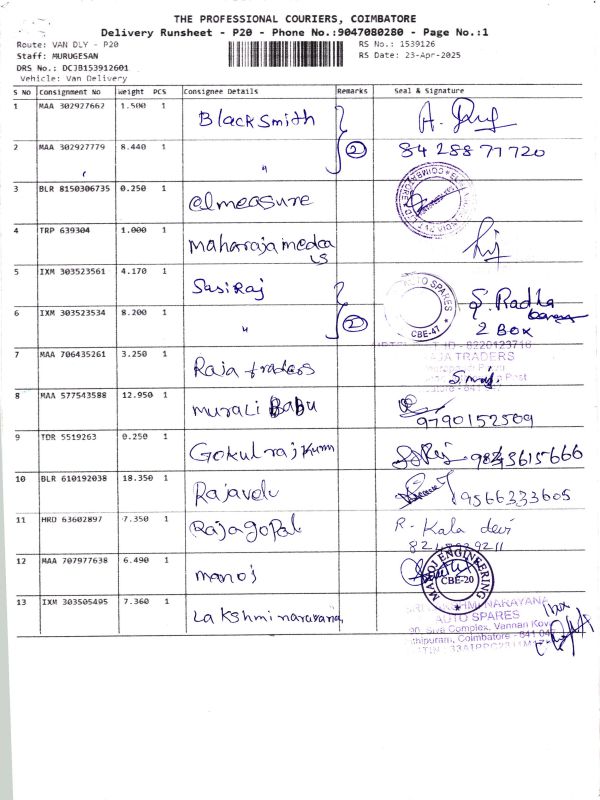 THE PROFESSIONAL COURIERS, COIMBATORE
Delivery Runsheet - P20 - Phone No.:9047080280 - Page No.:1
Route: VAN DLY - P20 RS No.: 1539126
Staff: MURUGESAN RS Date: 23-Apr-2025
DRS No.: DCJB153912601
Vehicle: Van Delivery
S No Consignment No Weight PCS Consignee Details Remarks Seal & Signature
1 MAA 302927662 1.500 1 Blacksmith
2 MAA 302927779 8.440 1 " 2 84 288 71 720
3 BLR 8150306735 0.250 1 elmeasure
4 TRP 639304 1.000 1 maharaja
5 IXM 303523561 4.170 1 Sasiraj AUTO SPARES S. Radha
6 IXM 303523534 8.200 1 " 2 CBE-47 2 BOX
7 MAA 706435261 3.250 1 Raja traders RAJA TRADERS
8 MAA 577543588 12.950 1 murali Babu 9790152509
9 TDR 5519263 0.250 1 Gokulraj
10 BLR 610192038 18.350 1 Rajavelu 9566333605
11 HRD 63602897 7.350 1 Rajagopal R. Kala devi
12 MAA 707977638 6.490 1 manoj MANOJ ENGINEERING CBE-20
13 IXM 303505495 7.360 1 Lakshminarayana NARAYANA
AUTO SPARES
Siva Complex, Vannan
Coimbatore - 641